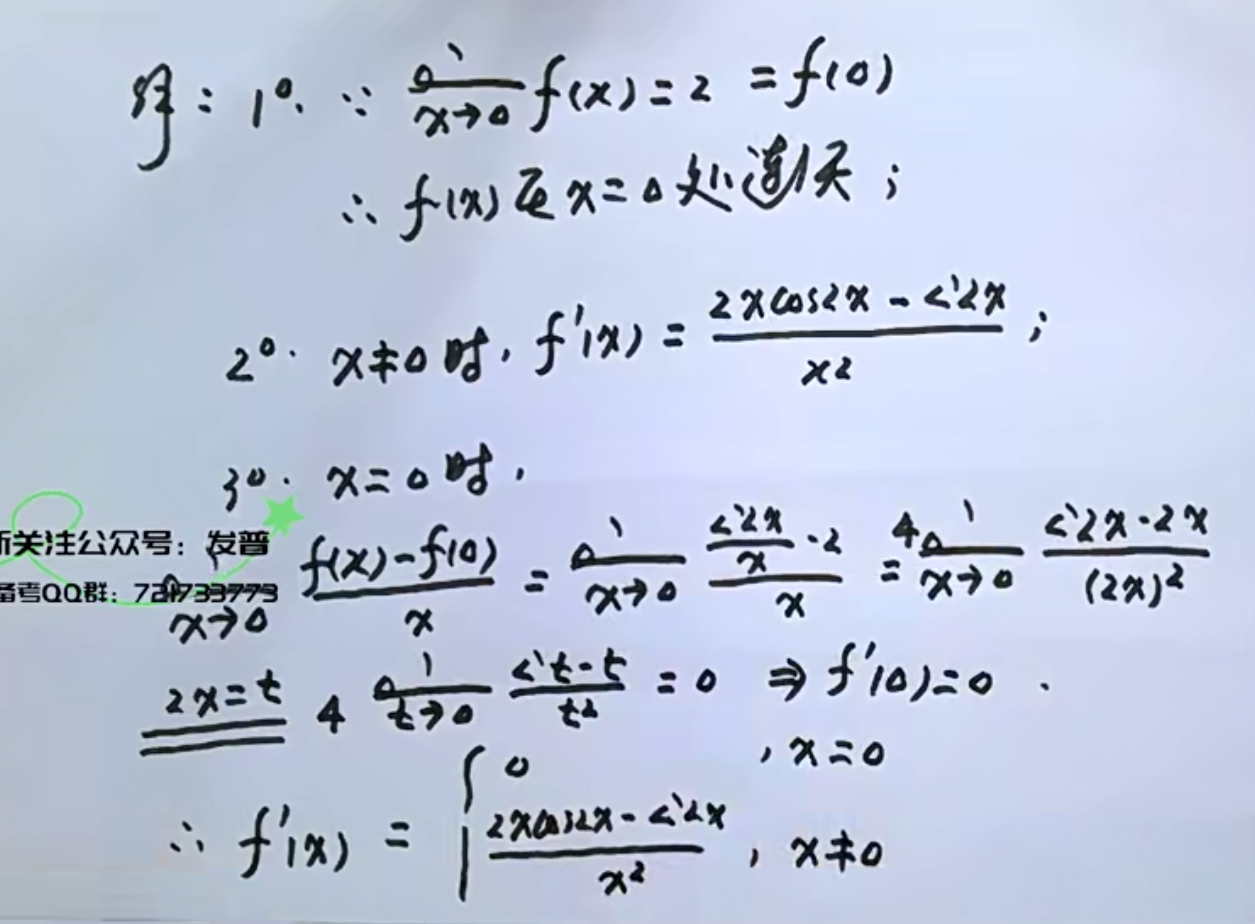 解: 1°. ∵ lim_{x→0} f(x) = 2 = f(0)
∴ f(x) 在 x=0 处连续;
2°. x≠0 时, f'(x) = \frac{2x\cos2x - \sin2x}{x^2};
3°. x=0 时,
新关注公众号:发普
备考QQ群:721733773
lim_{x→0} \frac{f(x)-f(0)}{x} = lim_{x→0} \frac{\frac{\sin2x}{x}-2}{x} = 4 lim_{x→0} \frac{\sin2x-2x}{(2x)^2}
\overset{2x=t}{=} 4 lim_{t→0} \frac{\sin t-t}{t^2} = 0 ⇒ f'(0)=0.
∴ f'(x) = { 0, x=0
\frac{2x\cos2x-\sin2x}{x^2}, x≠0